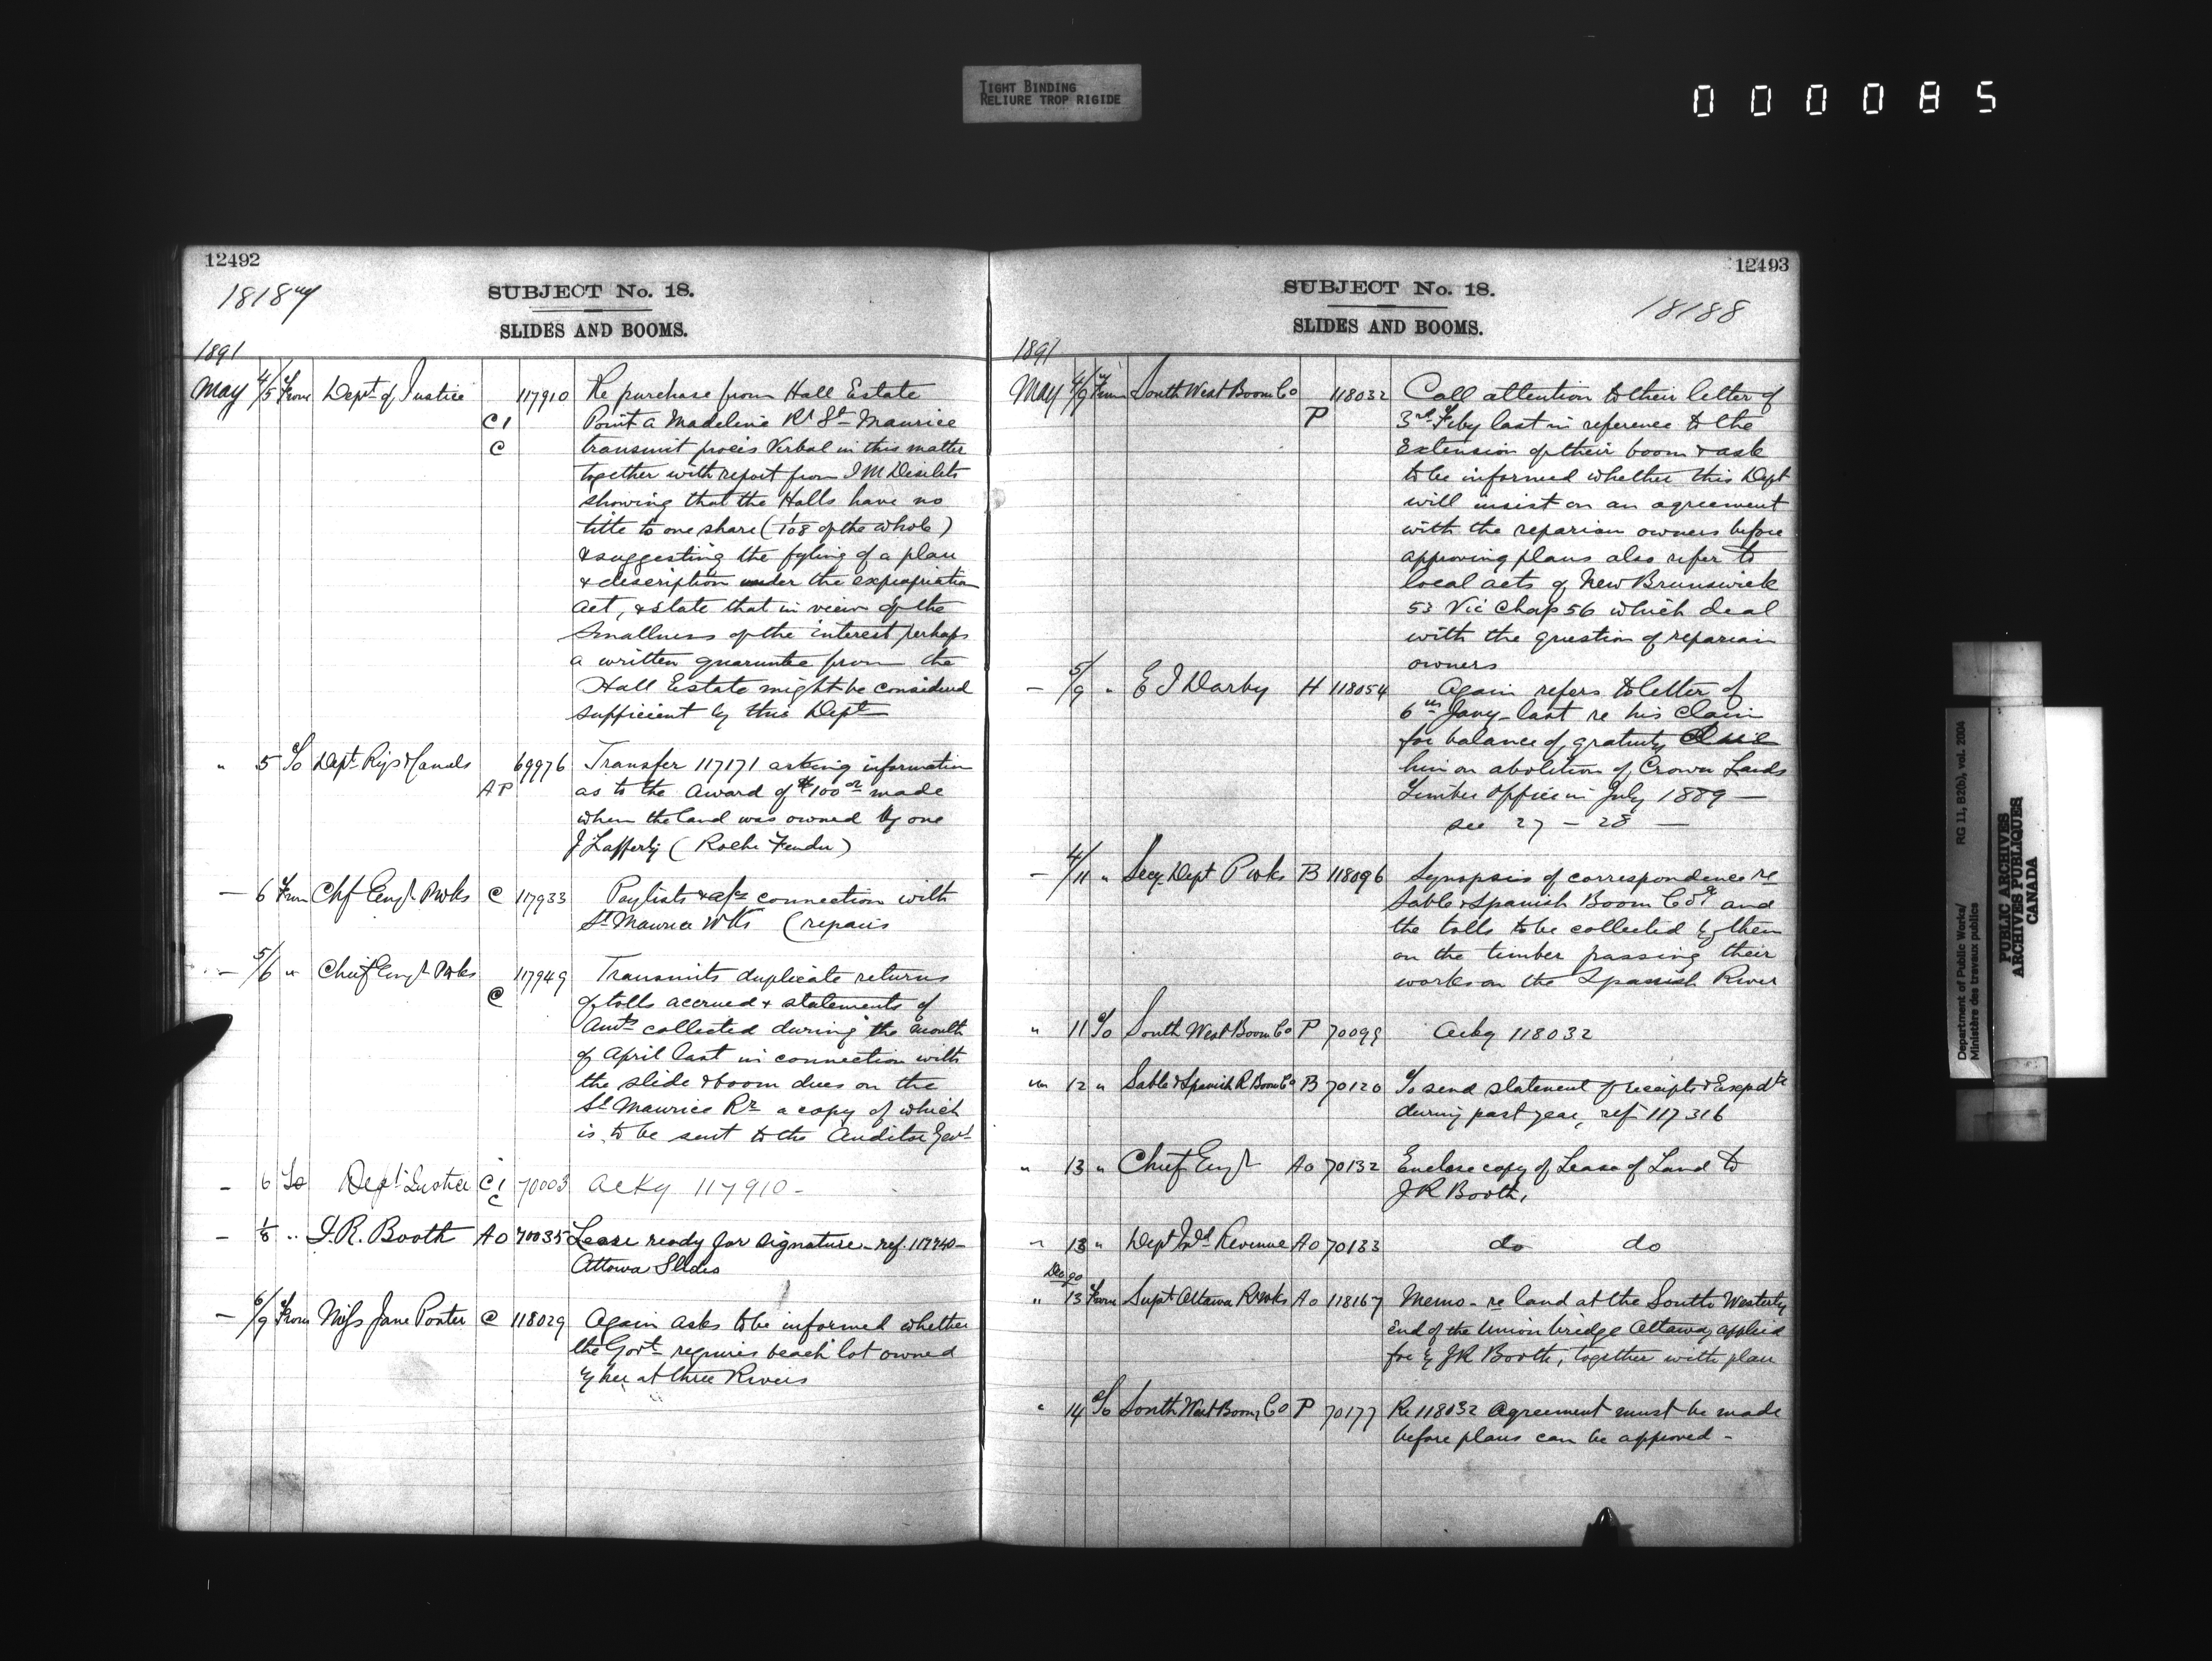 TIGHT BINDING
RELIURE TROP RIGIDE
000085
12492
18187
SUBJECT No. 18.
SLIDES AND BOOMS.
1891
May 4/5 From Dept of Justice 117910 Re purchase from Hall Estate
C1 Point a Madeline Rr St Maurice
C transmit procès Verbal in this matter
together with report from I M Desilets
showing that the Halls have no
title to one share (1/108 of the whole)
& suggesting the fyling of a plan
& description under the expropriation
act, & state that in view of the
Smallness of the interest perhaps
a written guaruntee from the
Hall Estate might be considered
sufficient by this Dept
" 5 To Dept Rys & Canals 69976 Transfer 117171 asking information
AP as to the award of $100 00 made
when the land was owned by one
J Lafferty (Roche Fendu)
— 6 From Chf Engr Pwks C 117933 Paylists & a/cs connection with
St Maurice Wks (repairs
— 5/6 " Chief Engr Pwks 117949 Transmits duplicate returns
C of tolls accrued & statements of
Amts collected during the month
of April last in connection with
the slide & boom dues on the
St Maurice Rr a copy of which
is to be sent to the Auditor Genl
— 6 To Dept Justice C1 70003 Acky 117910 -
C
— 1/8 " J.R. Booth Ao 70035 Lease ready for signature - ref. 117740 -
Ottawa Slides
— 6/9 From Miss Jane Porter C 118029 Again asks to be informed whether
the Govt requires beach lot owned
by her at three Rivers
12493
SUBJECT No. 18.
18188
SLIDES AND BOOMS.
1891
May 4/9 From South West Boom Co 118032 Call attention to their letter of
P 3rd Feby last in reference to the
Extension of their boom & ask
to be informed whether this Dept
will insist on an agreement
with the reparian owners before
approving plans also refer to
local acts of New Brunswick
53 Vic Chap 56 which deal
with the question of reparian
owners
— 5/9 " E J Darby H 118054 Again refers to letter of
6th Jany last re his claim
for balance of gratuity due
him on abolition of Crown Lands
Timber Office in July 1889 —
see 27 - 28 —
— 4/11 " Secy Dept P wks B 118096 Synopsis of correspondence re
Sable & Spanish Boom Co &c and
the tolls to be collected by them
on the timber passing their
works on the Spanish River
" 11 To South West Boom Co P 70099 Acky 118032
" 12 " Sable & Spanish R Boom Co B 70120 To send statement of receipts & Expdte
during past year, ref 117316
" 13 " Chief Engr Ao 70132 Enclose copy of Lease of Land to
J R Booth,
" 13 " Dept Ind Revenue Ao 70133 do do
Dec 90
" 13 From Supt Ottawa R wks Ao 118167 Memo - re land at the South Westerly
End of the Union bridge Ottawa, applied
for by J R Booth, together with plan
" 14 To South West Boom Co P 70177 Re 118032 Agreement must be made
before plans can be approved -
Department of Public Works/ RG 11, B2(b), vol. 2004
Ministère des travaux publics
PUBLIC ARCHIVES
ARCHIVES PUBLIQUES
CANADA